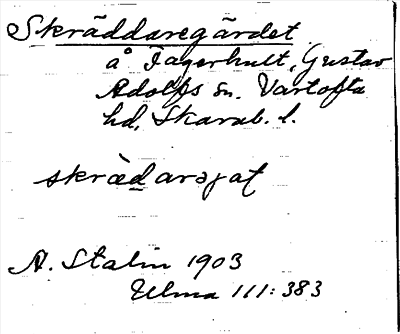 Skräddaregärdet
å Fagerhult, Gustav
Adolfs sn. Vartofta
hd, Skarab. l.
skrædarəjaʈ
A. Stalin 1903
Ulma 111: 383